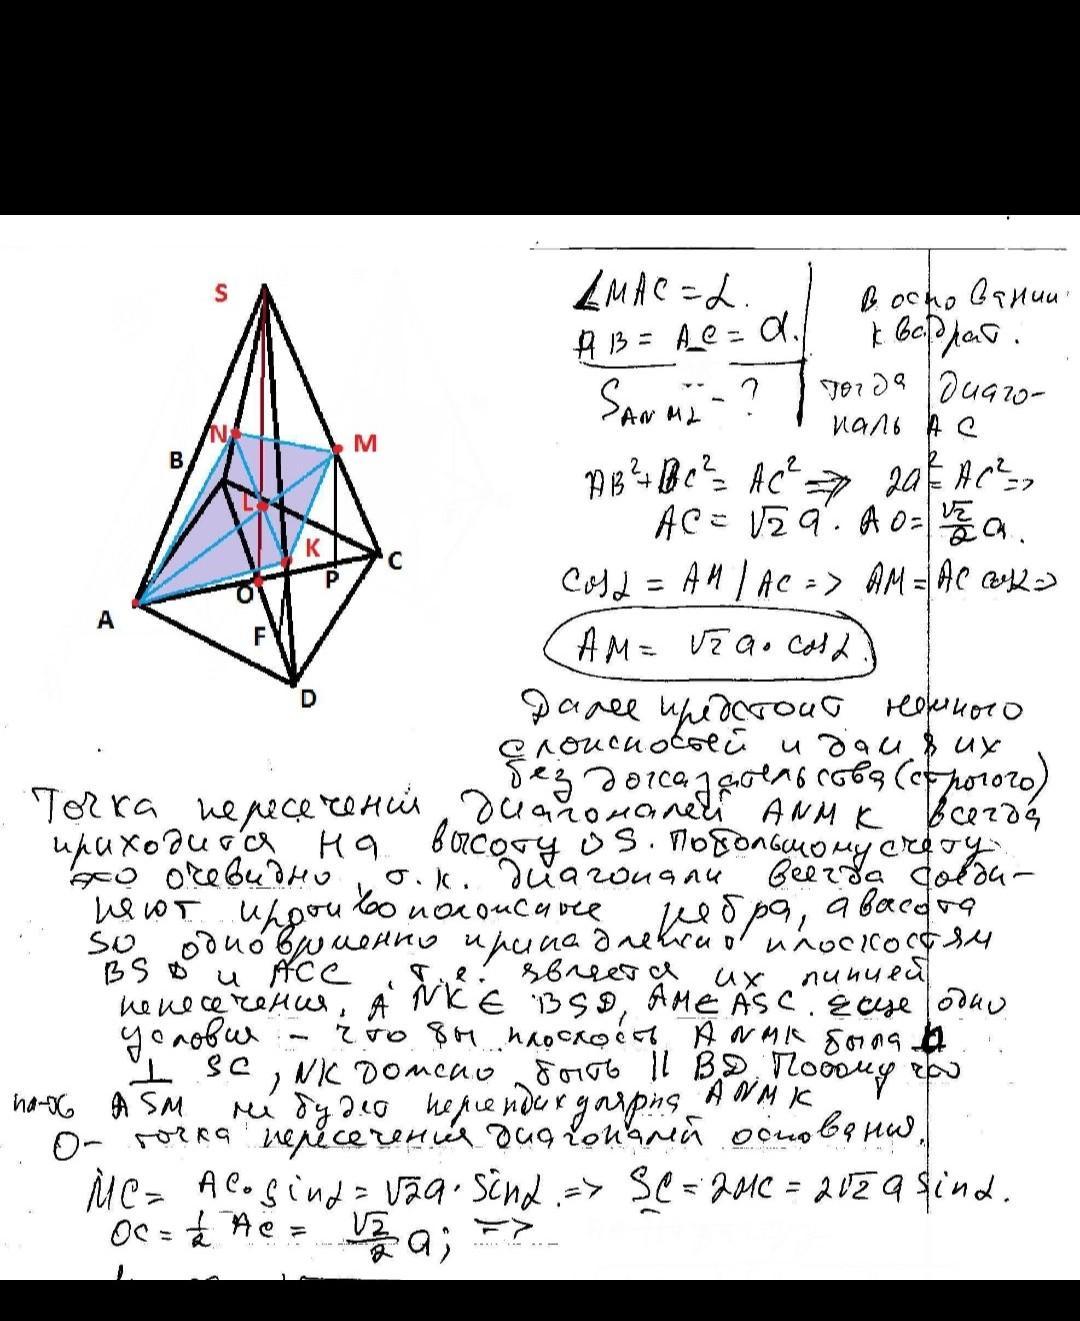 S
N
M
B
L
K
C
O
P
A
F
D
∠MAC = α.
AB = AC = a.
S ANML - ?
В основании
квадрат.
тогда диаго-
наль AC
AB² + BC² = AC² => 2a² = AC² =>
AC = √2 a. AO = √2/2 a.
Cosα = AM / AC => AM = AC cosα =>
AM = √2 a · cosα.
Далее предстоит немного
сложностей и дам я их
без доказательства (строгого)
Точка пересечения диагоналей ANMK всегда
приходится на высоту OS. По большому счету
это очевидно, т.к. диагонали всегда соеди-
няют противоположные ребра, а высота
SO одновременно принадлежит плоскостям
BSD и ACC, т.е. является их линией
пересечения, А NK ∈ BSD, AM ∈ ASC. Еще одно
условия - что бы плоскость ANMK была
⊥ SC, NK должно быть || BD. Потому что
пл-ть ASM не будет перпендикулярна ANMK
O - точка пересечения диагоналей основания.
MC = AC · Sinα = √2 a · Sinα. => SC = 2MC = 2√2 a Sinα.
OC = 1/2 AC = √2/2 a; =>